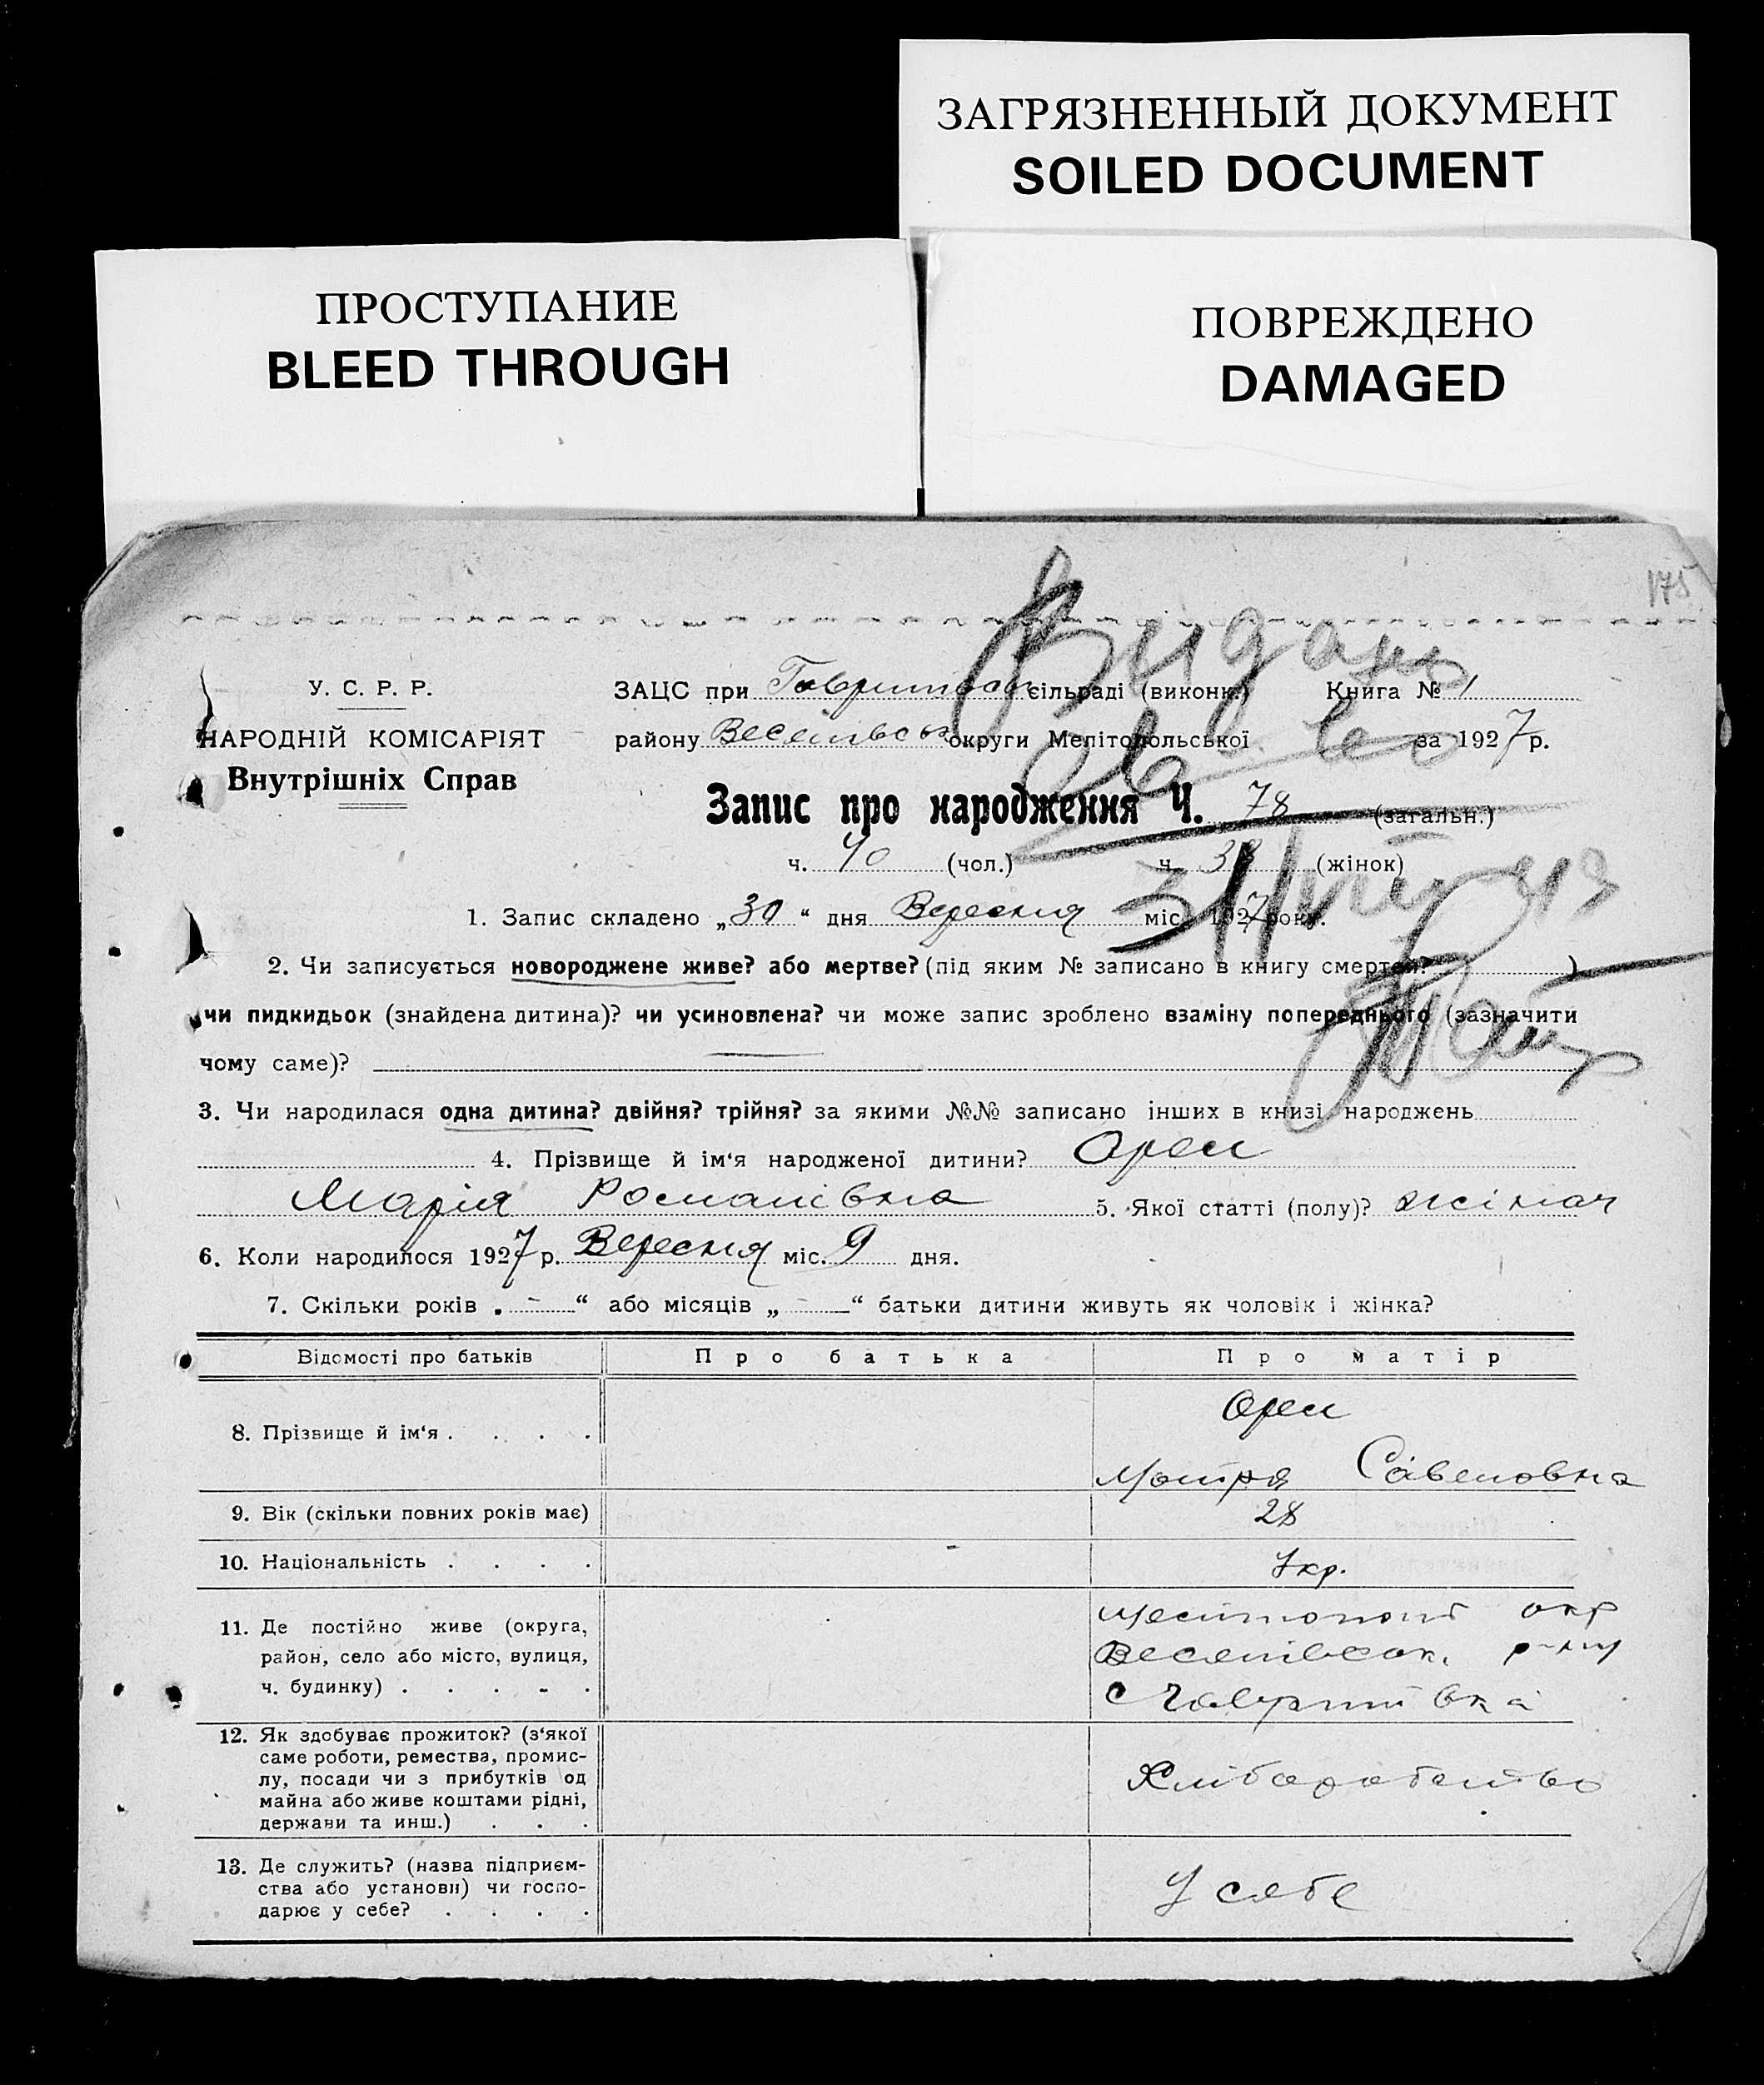 ЗАГРЯЗНЕННЫЙ ДОКУМЕНТ
SOILED DOCUMENT
ПРОСТУПАНИЕ
BLEED THROUGH
ПОВРЕЖДЕНО
DAMAGED
175
У. С. Р. Р.
НАРОДНІЙ КОМІСАРІЯТ
Внутрішніх Справ
ЗАЦС при сільраді (виконк.) Книга № 1
району Веселівськ округи Мелітопольської за 1927 р.
Запис про народження Ч. 78 (загальн.)
ч. 40 (чол.) ч. 38 (жінок)
1. Запис складено „30“ дня Вересня міс. 1927 року.
2. Чи записується новороджене живе? або мертве? (під яким № записано в книгу смертей? )
чи пидкидьок (знайдена дитина)? чи усиновлена? чи може запис зроблено взаміну попереднього (зазначити
чому саме)?
3. Чи народилася одна дитина? двійня? трійня? за якими №№ записано інших в книзі народжень
4. Прізвище й ім‘я народженої дитини? Орел
Марія Романівна 5. Якої статті (полу)? жіноч
6. Коли народилося 1927 р. Вересня міс. 9 дня.
7. Скільки років „ - “ або місяців „ - “ батьки дитини живуть як чоловік і жінка?
Відомості про батьків Про батька Про матір
8. Прізвище й ім‘я . . . . Орел
Мотря Савеловна
9. Вік (скільки повних років має) 28
10. Національність . . . . Укр.
11. Де постійно живе (округа, Мелітопол окр
район, село або місто, вулиця, Веселівськ. р-ну
ч. будинку) . . . . . с Гаврилівка
12. Як здобуває прожиток? (з‘якої
саме роботи, ремества, промис-
лу, посади чи з прибутків од Хліборобство
майна або живе коштами рідні,
держави та инш.) . . .
13. Де служить? (назва підприєм-
ства або установи) чи госпо- У себе
дарює у себе? . . . .